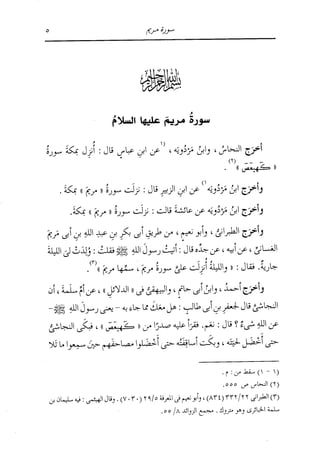 سورة مريم ٥
بسم الله الرحمن الرحيم
سورةُ مريمَ عليها السلامُ
أخرَج النحاسُ، وابنُ مَرْدُويَه، (١عن ابنِ عباسٍ قال: أُنزِل بمكةَ سورةُ
« كهيعص » (٢).
وأخرَج ابنُ مَرْدُويَه ١) عن ابنِ الزبيرِ قال: نزَلت سورةُ « مريمَ » بمكةَ.
وأخرَج ابنُ مَرْدُويَه عن عائشةَ قالت: نزَلت سورةُ « مريمَ » بمكةَ.
وأخرَج الطبرانيُّ، وأبو نعيمٍ، من طريقِ أبى بكرِ بنِ عبدِ اللهِ بنِ أبى مريمَ
الغسانيِّ، عن أبيه، عن جدِّه قال: أتيتُ رسولَ اللهِ ﷺ فقلتُ: وُلِدت لىَ الليلةَ
جاريةٌ. فقال: « والليلةَ أُنزِلت علىَّ سورةُ مريمَ، سمِّها مريمَ » (٣).
وأخرَج أحمدُ، وابنُ أبى حاتمٍ، والبيهقىُّ فى « الدلائلِ »، عن أمِّ سلمةَ، أن
النجاشىَّ قال لجعفرِ بنِ أبى طالبٍ: هل معَك مما جاء به - يعنى رسولَ اللهِ ﷺ -
عن اللهِ شىءٌ؟ قال: نعم. فقرَأ عليه صدرًا من « كهيعص »، فبكَى النجاشىُّ
حتى أخضَل لحيتَه، وبكَت أساقفتُه حتى أخضَلوا مصاحفَهم حينَ سمِعوا ما تلا
(١ - ١) سقط من: م.
(٢) النحاس ص ٥٥٥.
(٣) الطبرانى ٣٣٢/٢٢ (٨٣٤)، وأبو نعيم فى المعرفة ٢٩/٥ (٧٠٣٠). وقال الهيثمى: فيه سليمان بن
سلمة الخبائرى وهو متروك. مجمع الزوائد ٨/ ٥٥.